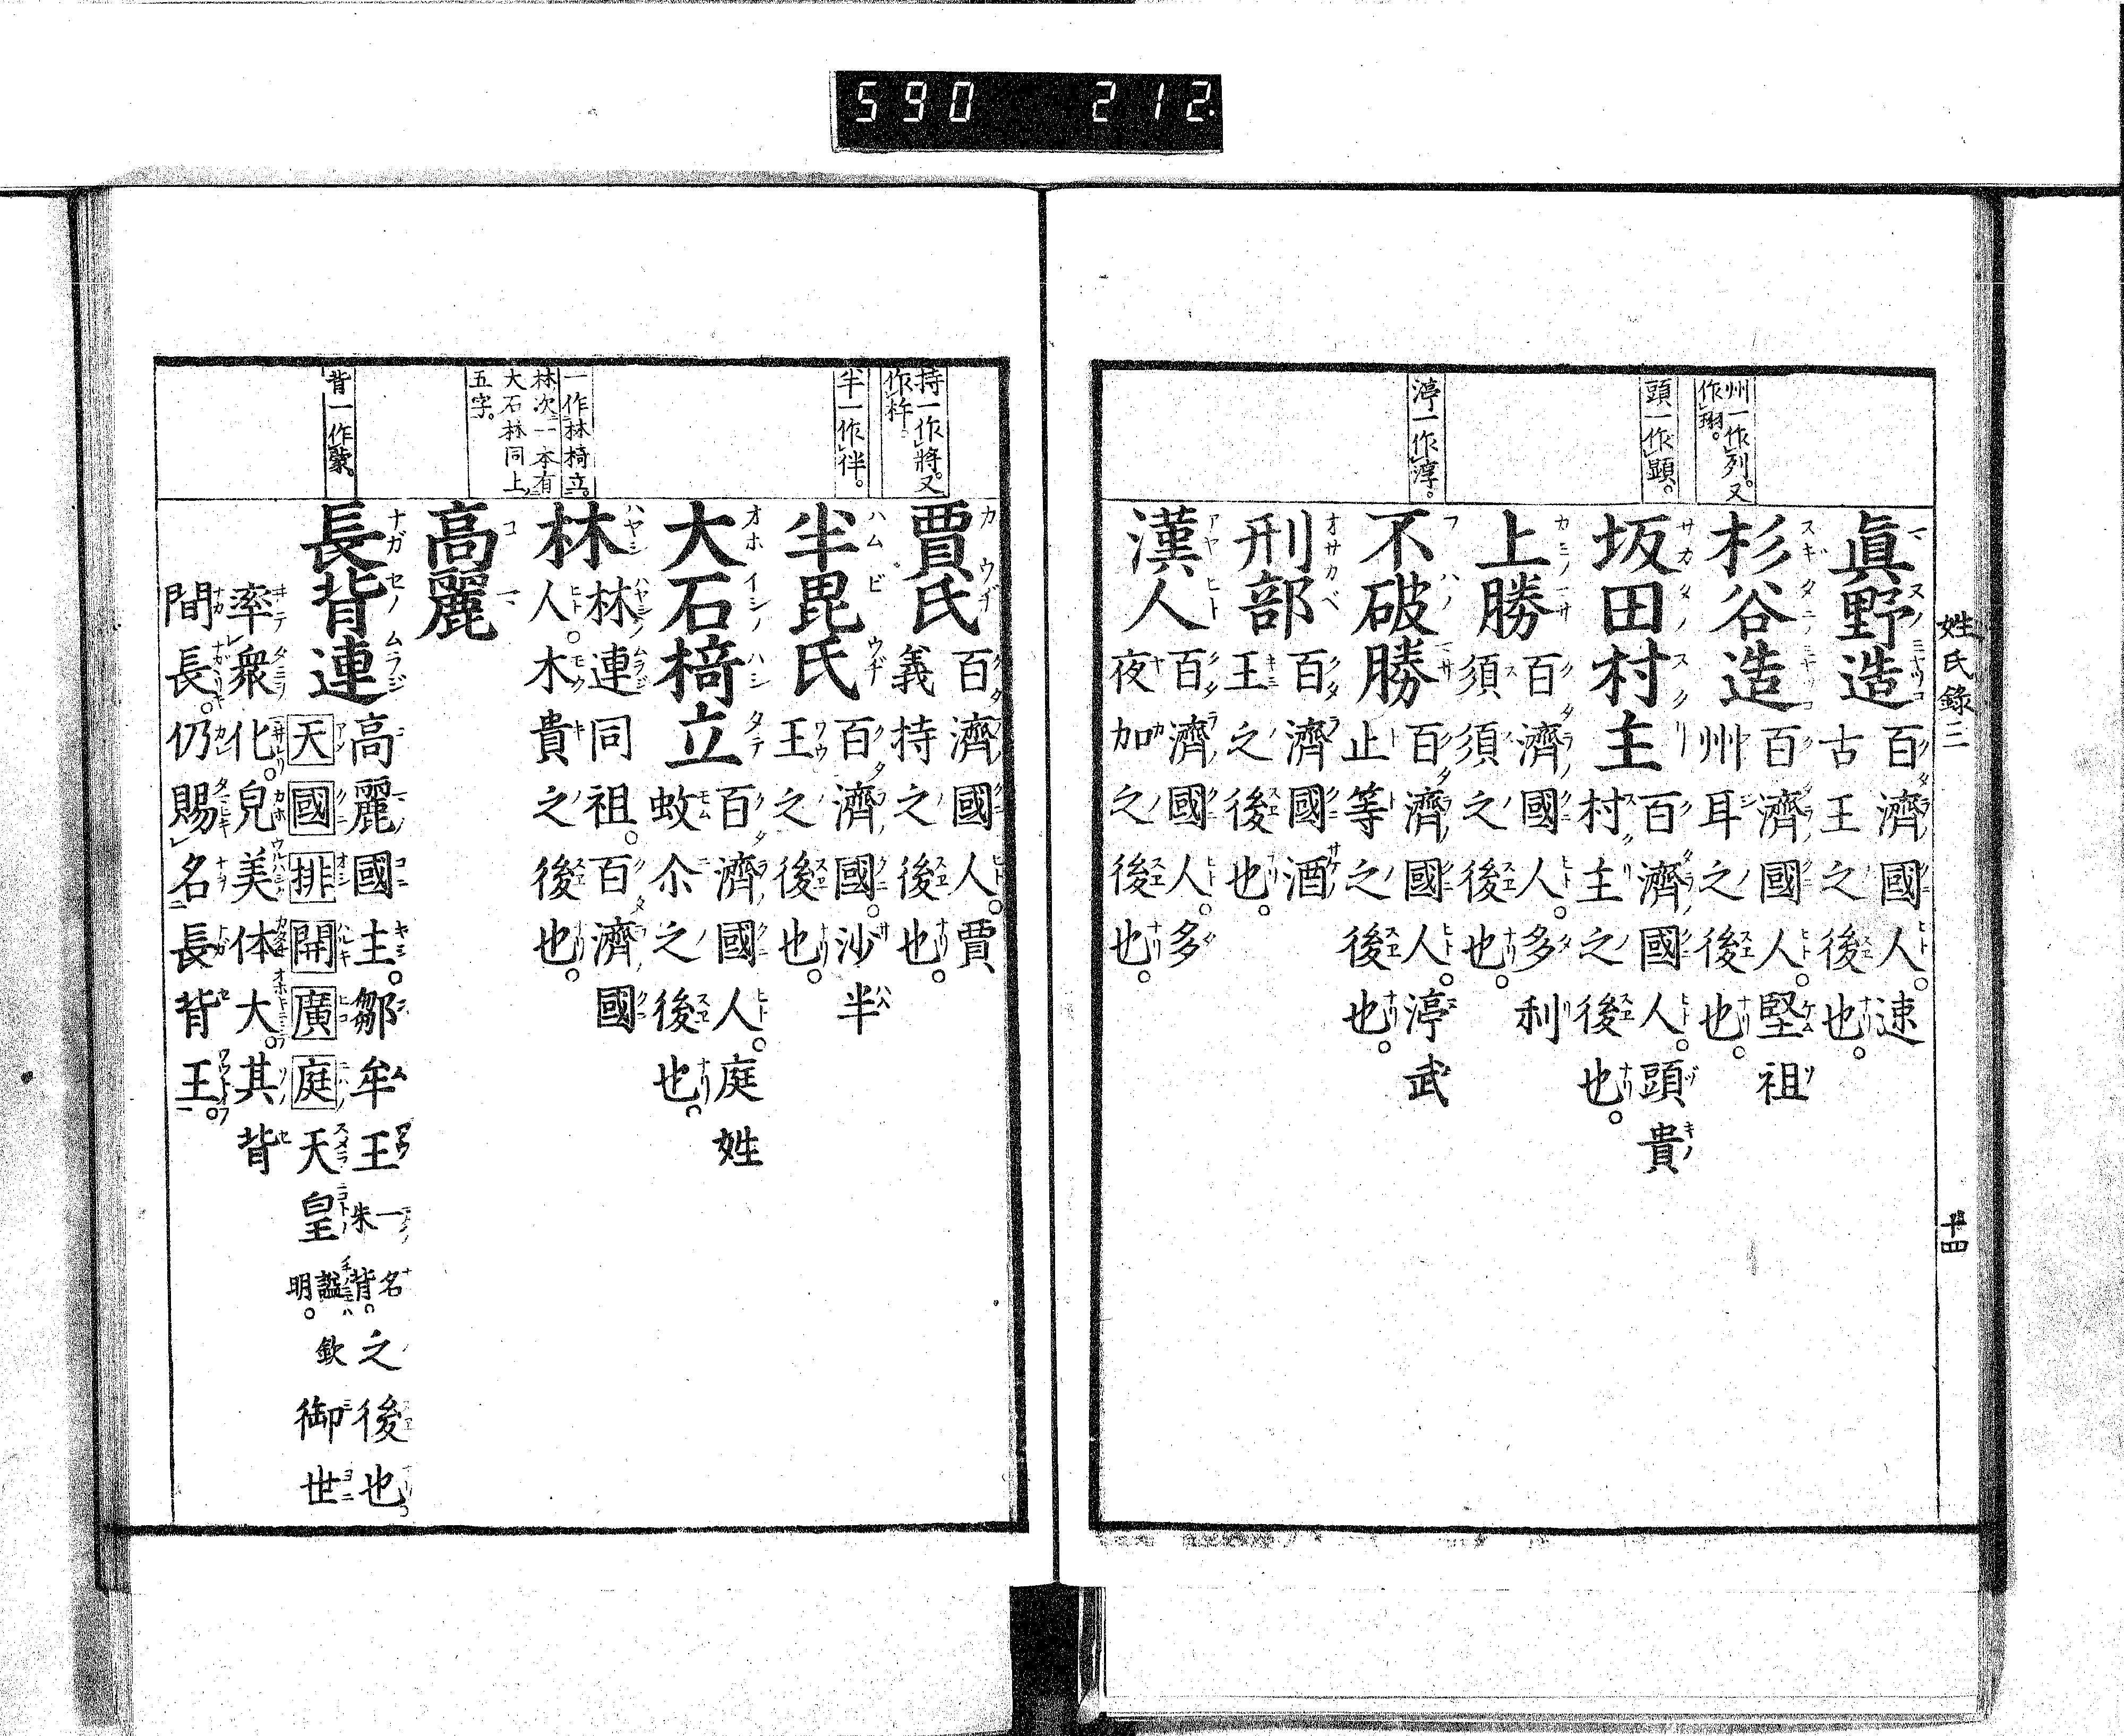 590 212.
姓氏錄三
十四
州一作列。又
作珊。
頭一作顕。
渟一作淳。
眞野造 百濟國人。速
古王之後也。
杉谷造 百濟國人。堅祖
州耳之後也。
坂田村主 百濟國人。頭貴
村主之後也。
上勝 百濟國人。多利
須須之後也。
不破勝 百濟國人。渟武
止等之後也。
刑部 百濟國酒
王之後也。
漢人 百濟國人。多
夜加之後也。
持一作將。又
作杵。
半一作伴。
一作林椅立。
林次一本有
大石林同上
五字。
背一作䝉。
賈氏 百濟國人。賈
義持之後也。
半毘氏 百濟國。沙半
王之後也。
大石椅立 百濟國人。庭姓
蚊尒之後也。
林 林連同祖。百濟國
人。木貴之後也。
高麗
長背連 高麗國主。鄒牟王 一名
朱背。 之後也
天國排開廣庭天皇 謚欽
明。 御世
率衆化。皃美体大。其背
間長。仍賜名長背王。